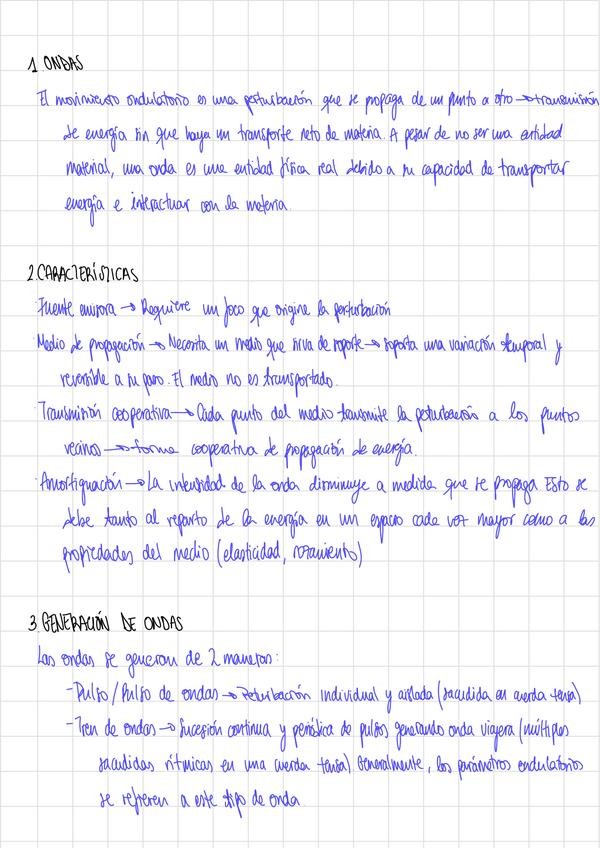 1. ONDAS
El movimiento ondulatorio es una perturbación que se propaga de un punto a otro → transmisión
de energía sin que haya un transporte neto de materia. A pesar de no ser una entidad
material, una onda es una entidad física real debido a su capacidad de transportar
energía e interactuar con la materia.
2. CARACTERÍSTICAS
· Fuente emisora → Requiere un foco que origine la perturbación
· Medio de propagación → Necesita un medio que sirva de soporte → soporta una variación temporal y
reversible a su paso. El medio no es transportado.
· Transmisión cooperativa → Cada punto del medio transmite la perturbación a los puntos
vecinos → forma cooperativa de propagación de energía.
· Amortiguación → La intensidad de la onda disminuye a medida que se propaga. Esto se
debe tanto al reparto de la energía en un espacio cada vez mayor como a las
propiedades del medio (elasticidad, rozamiento)
3. GENERACIÓN DE ONDAS
Las ondas se generan de 2 maneras:
- Pulso / Pulso de ondas → Perturbación individual y aislada (sacudida en cuerda tensa)
- Tren de ondas → Sucesión continua y periódica de pulsos generando onda viajera (múltiples
sacudidas rítmicas en una cuerda tensa) Generalmente, los parámetros ondulatorios
se refieren a este tipo de onda